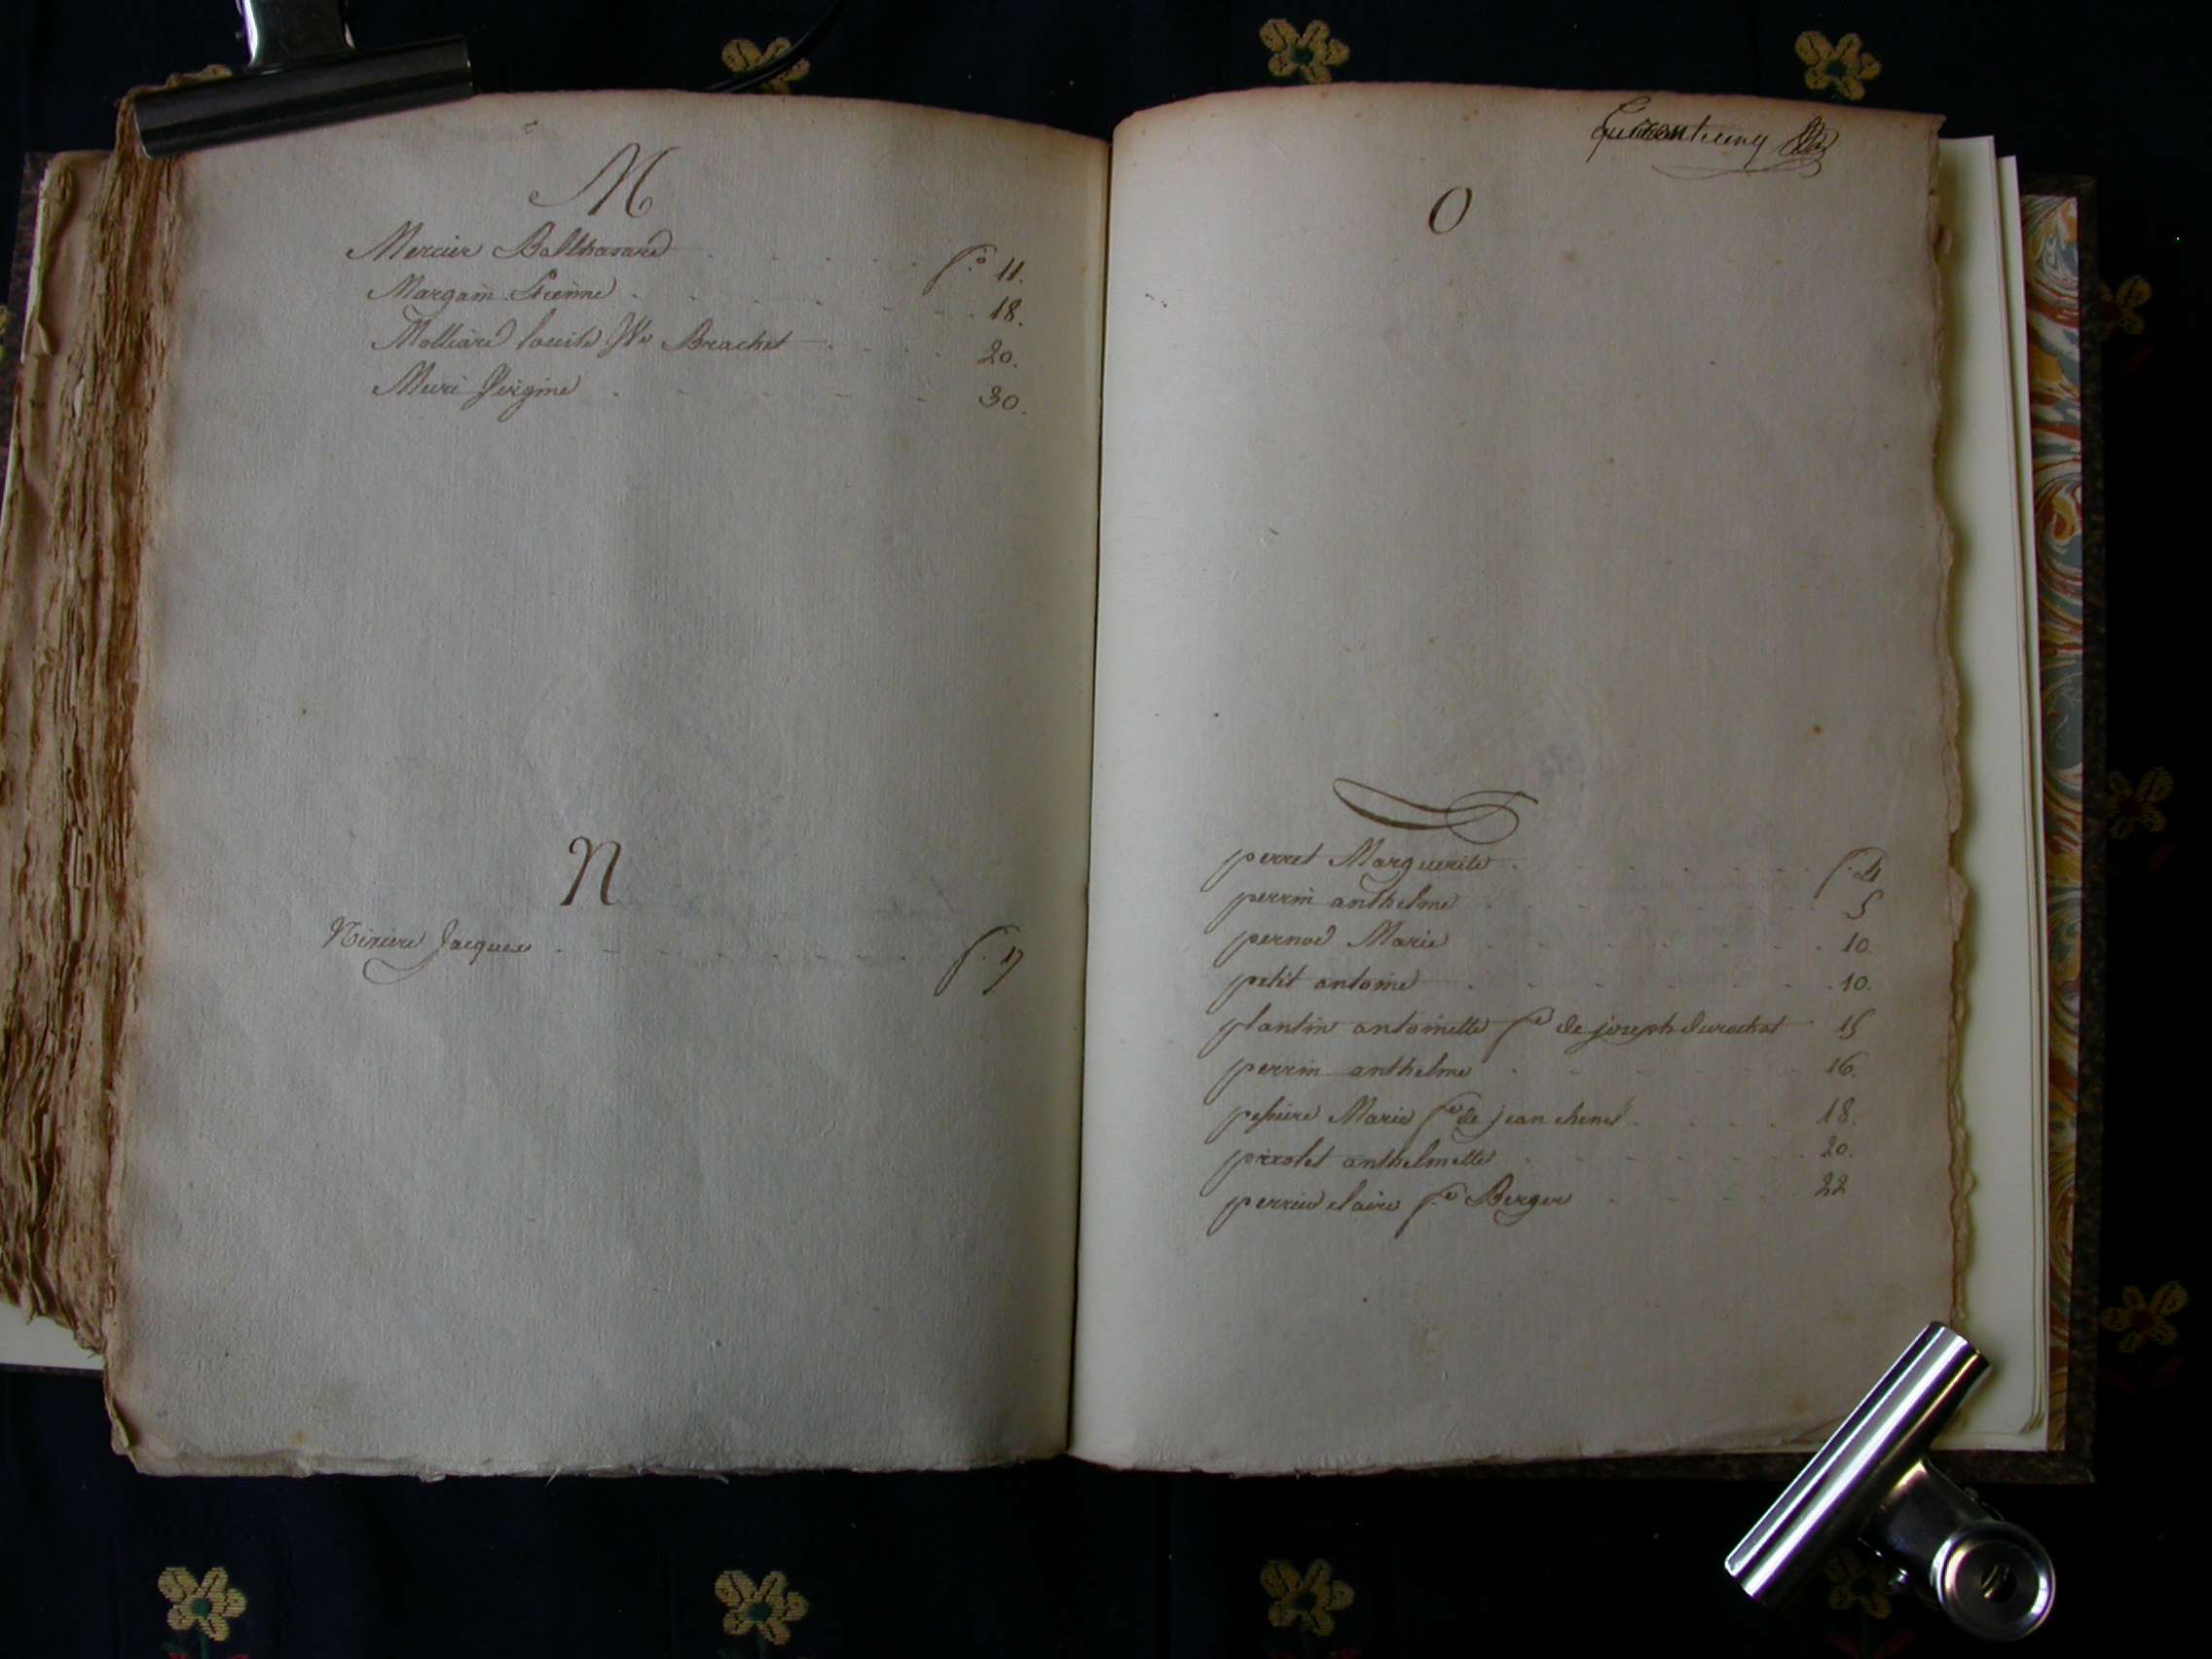 M
Mercier Balthasard f.o 11.
Margain Etienne 18.
Molliard louise Ve Brachet 20.
Muri Virgine 30.
N
Niviere Jacques f. 17
O
perret Marguerite f. 4
perrin anthelme 5
pernod Marie 10.
petit antoine 10.
plantin antoinette fe de joseph durochat 15
perrin anthelme 16.
pesniere Marie fe de jean chenel 18.
anthelmette 20.
perrier claire fe Berger 22